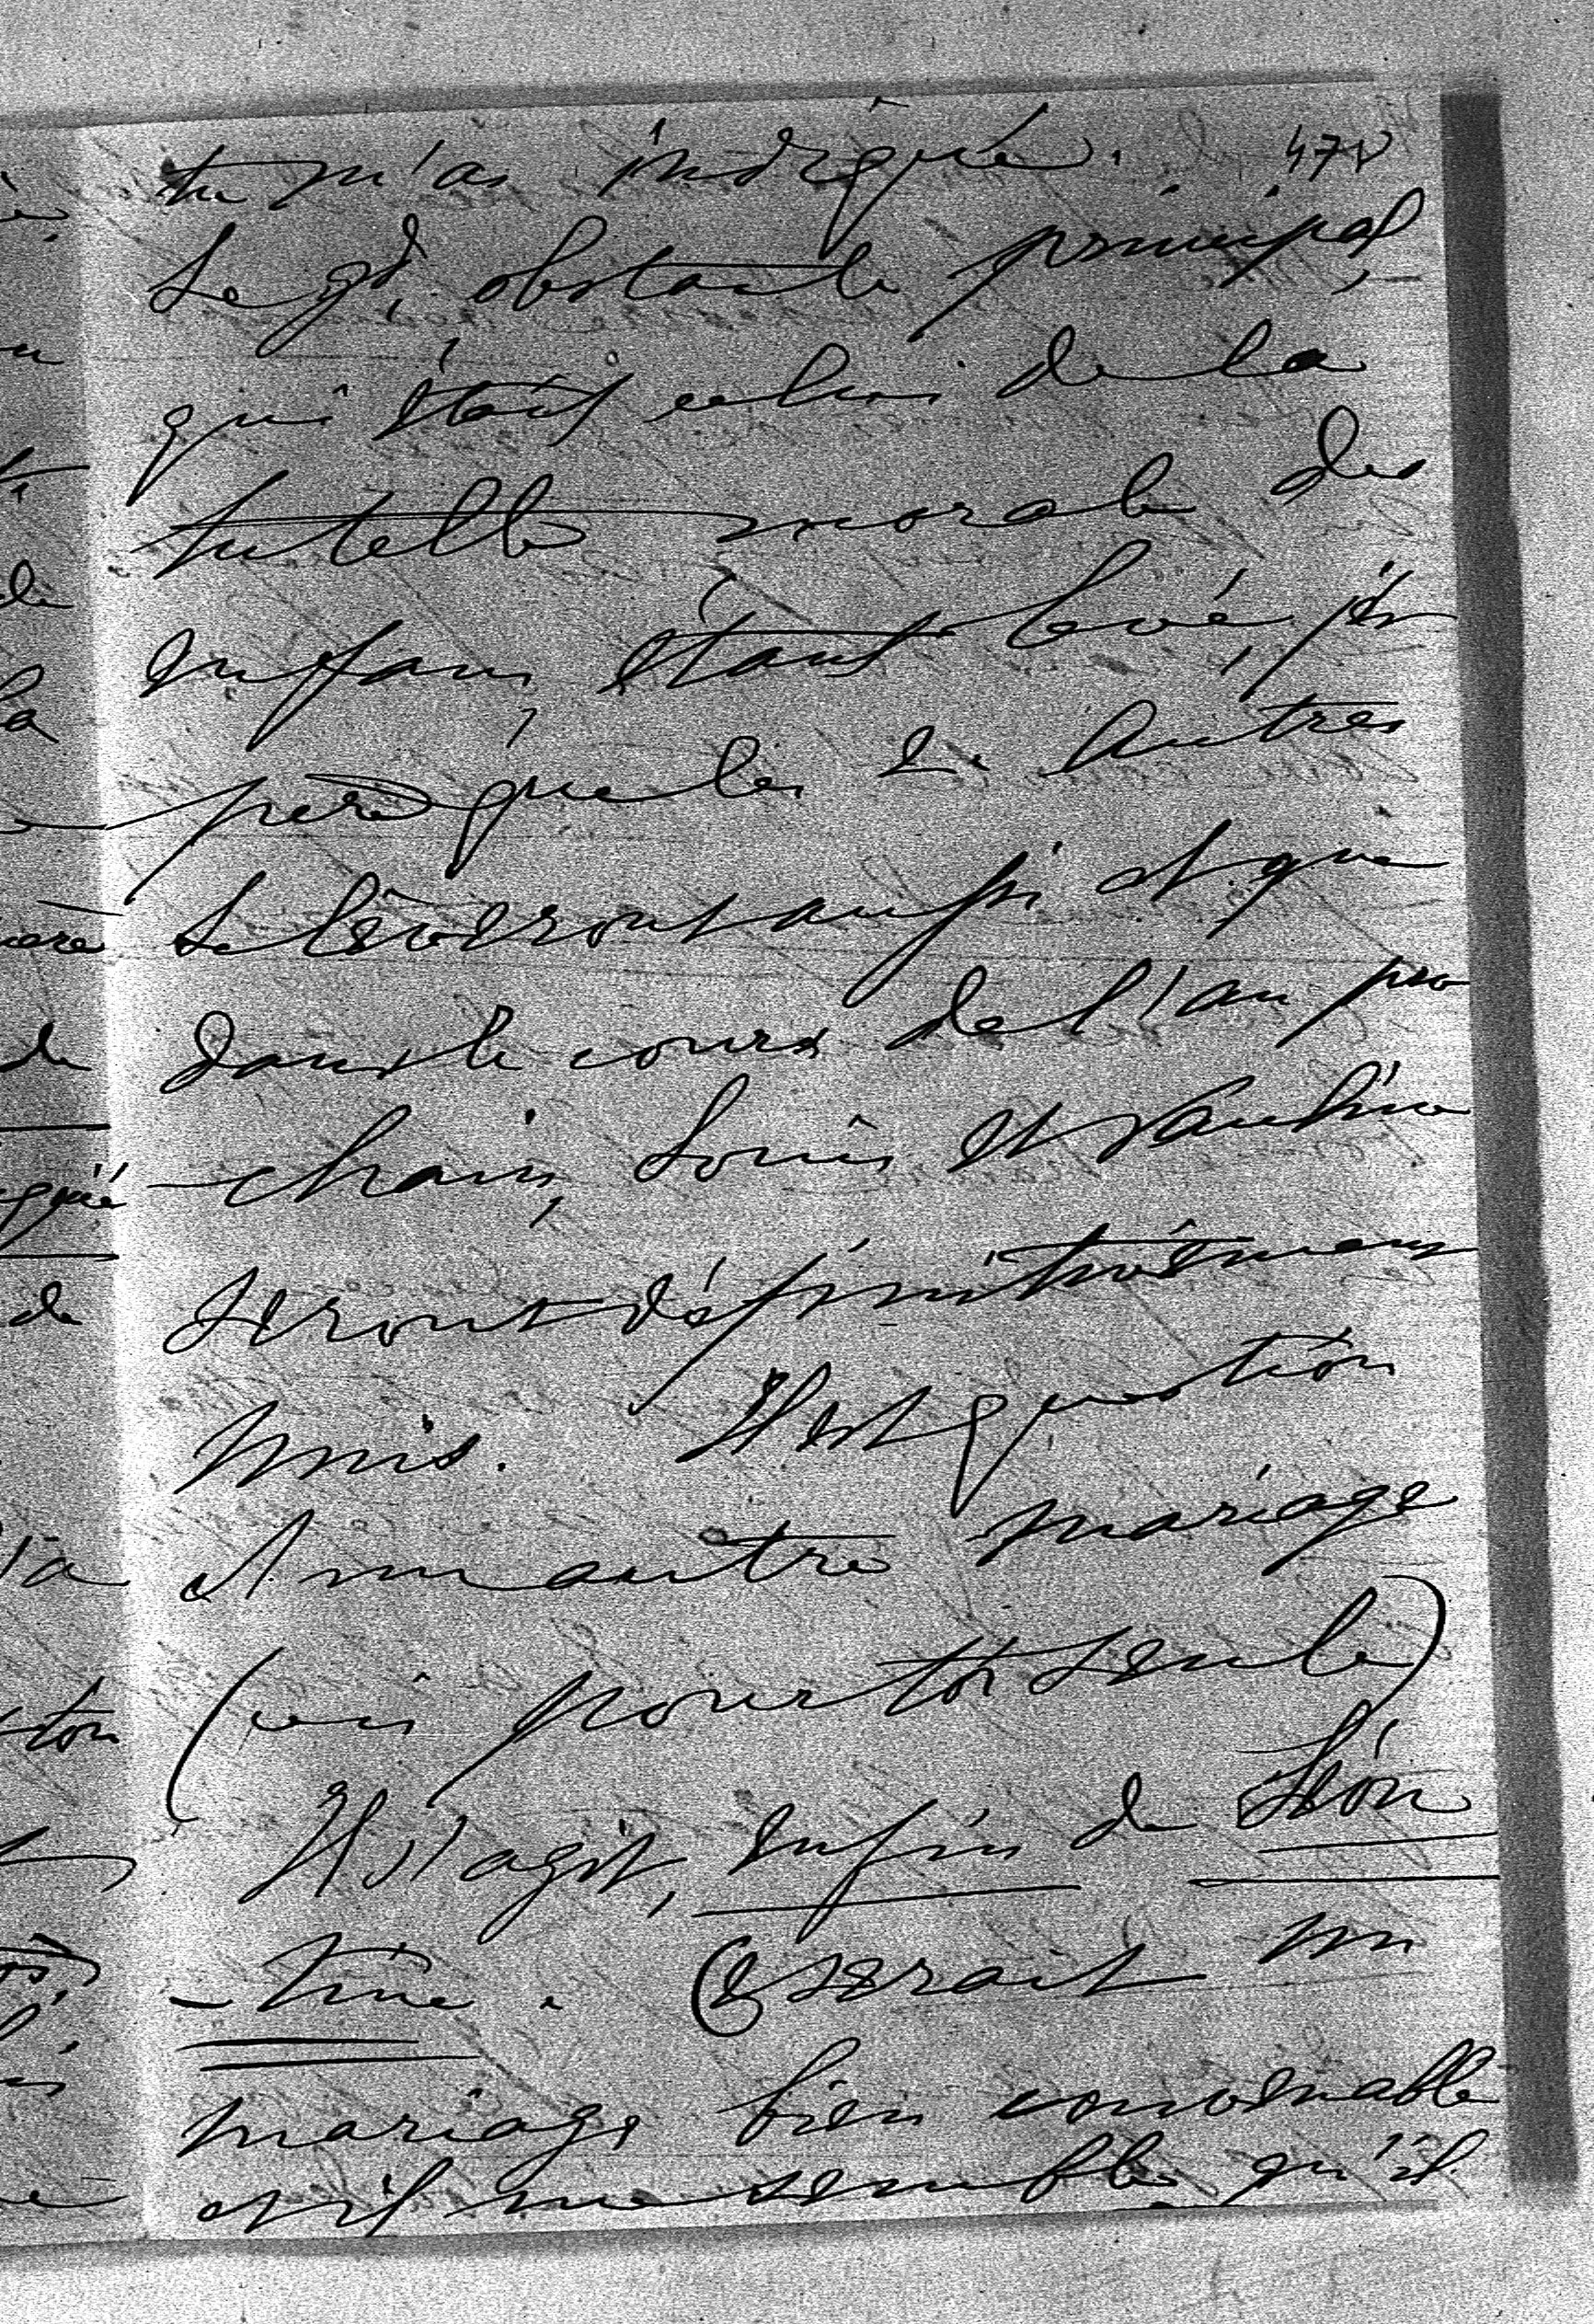 tu m'as indiqué. 478
Le gd, obstacle principal,
qui était celui de la
tutelle morale des
enfans, étant levé, j'es
père que les 2. autres
se lèveront aussi et que
dans le cours de l'an pro
chain, Louis et Pauline
seront définitivement
unis. Il est question
d'un autre mariage
(ceci pour toi seule)
Il s'agit, enfin de Léon
-tine. Ce serait un
mariage bien convenable
et il me semble qu'il